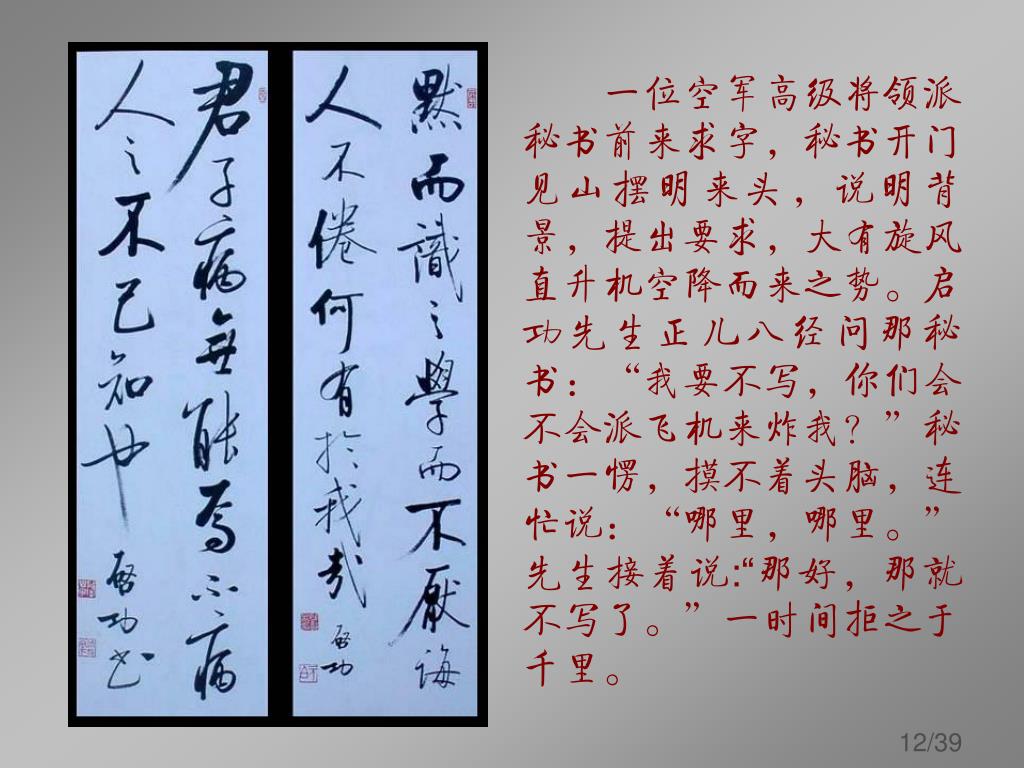 默而識之學而不厭誨
人不倦何有於我哉
啟功
君子病無能焉不病
人之不己知也
啟功书
一位空军高级将领派
秘书前来求字，秘书开门
见山摆明来头，说明背
景，提出要求，大有旋风
直升机空降而来之势。启
功先生正儿八经问那秘
书：“我要不写，你们会
不会派飞机来炸我？”秘
书一愣，摸不着头脑，连
忙说：“哪里，哪里。”
先生接着说：“那好，那就
不写了。”一时间拒之于
千里。
12/39